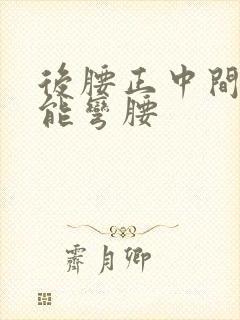 後腰正中間
能彎腰
霽月卿